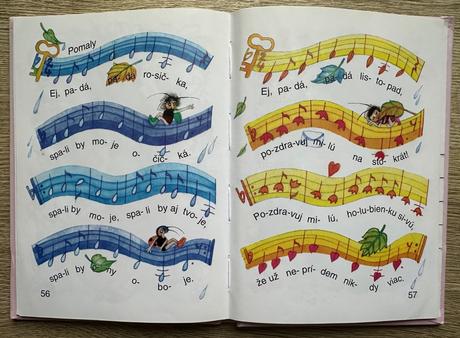 Pomaly
Ej, pa- dá, pa- dá ro-sič- ka,
spa-li by mo- je o- čič- ká.
spa-li by mo- je, spa-li by aj tvo-je,
spa-li by ny o- bo- je.
56
Ej, pa-dá, pa-dá lis- to- pad,
po-zdra-vuj mi- lú na sto- krát!
Po-zdra-vuj mi- lú, ho-lu-bien-ku si-vú,
že už ne- prí- dem nik- dy viac.
57